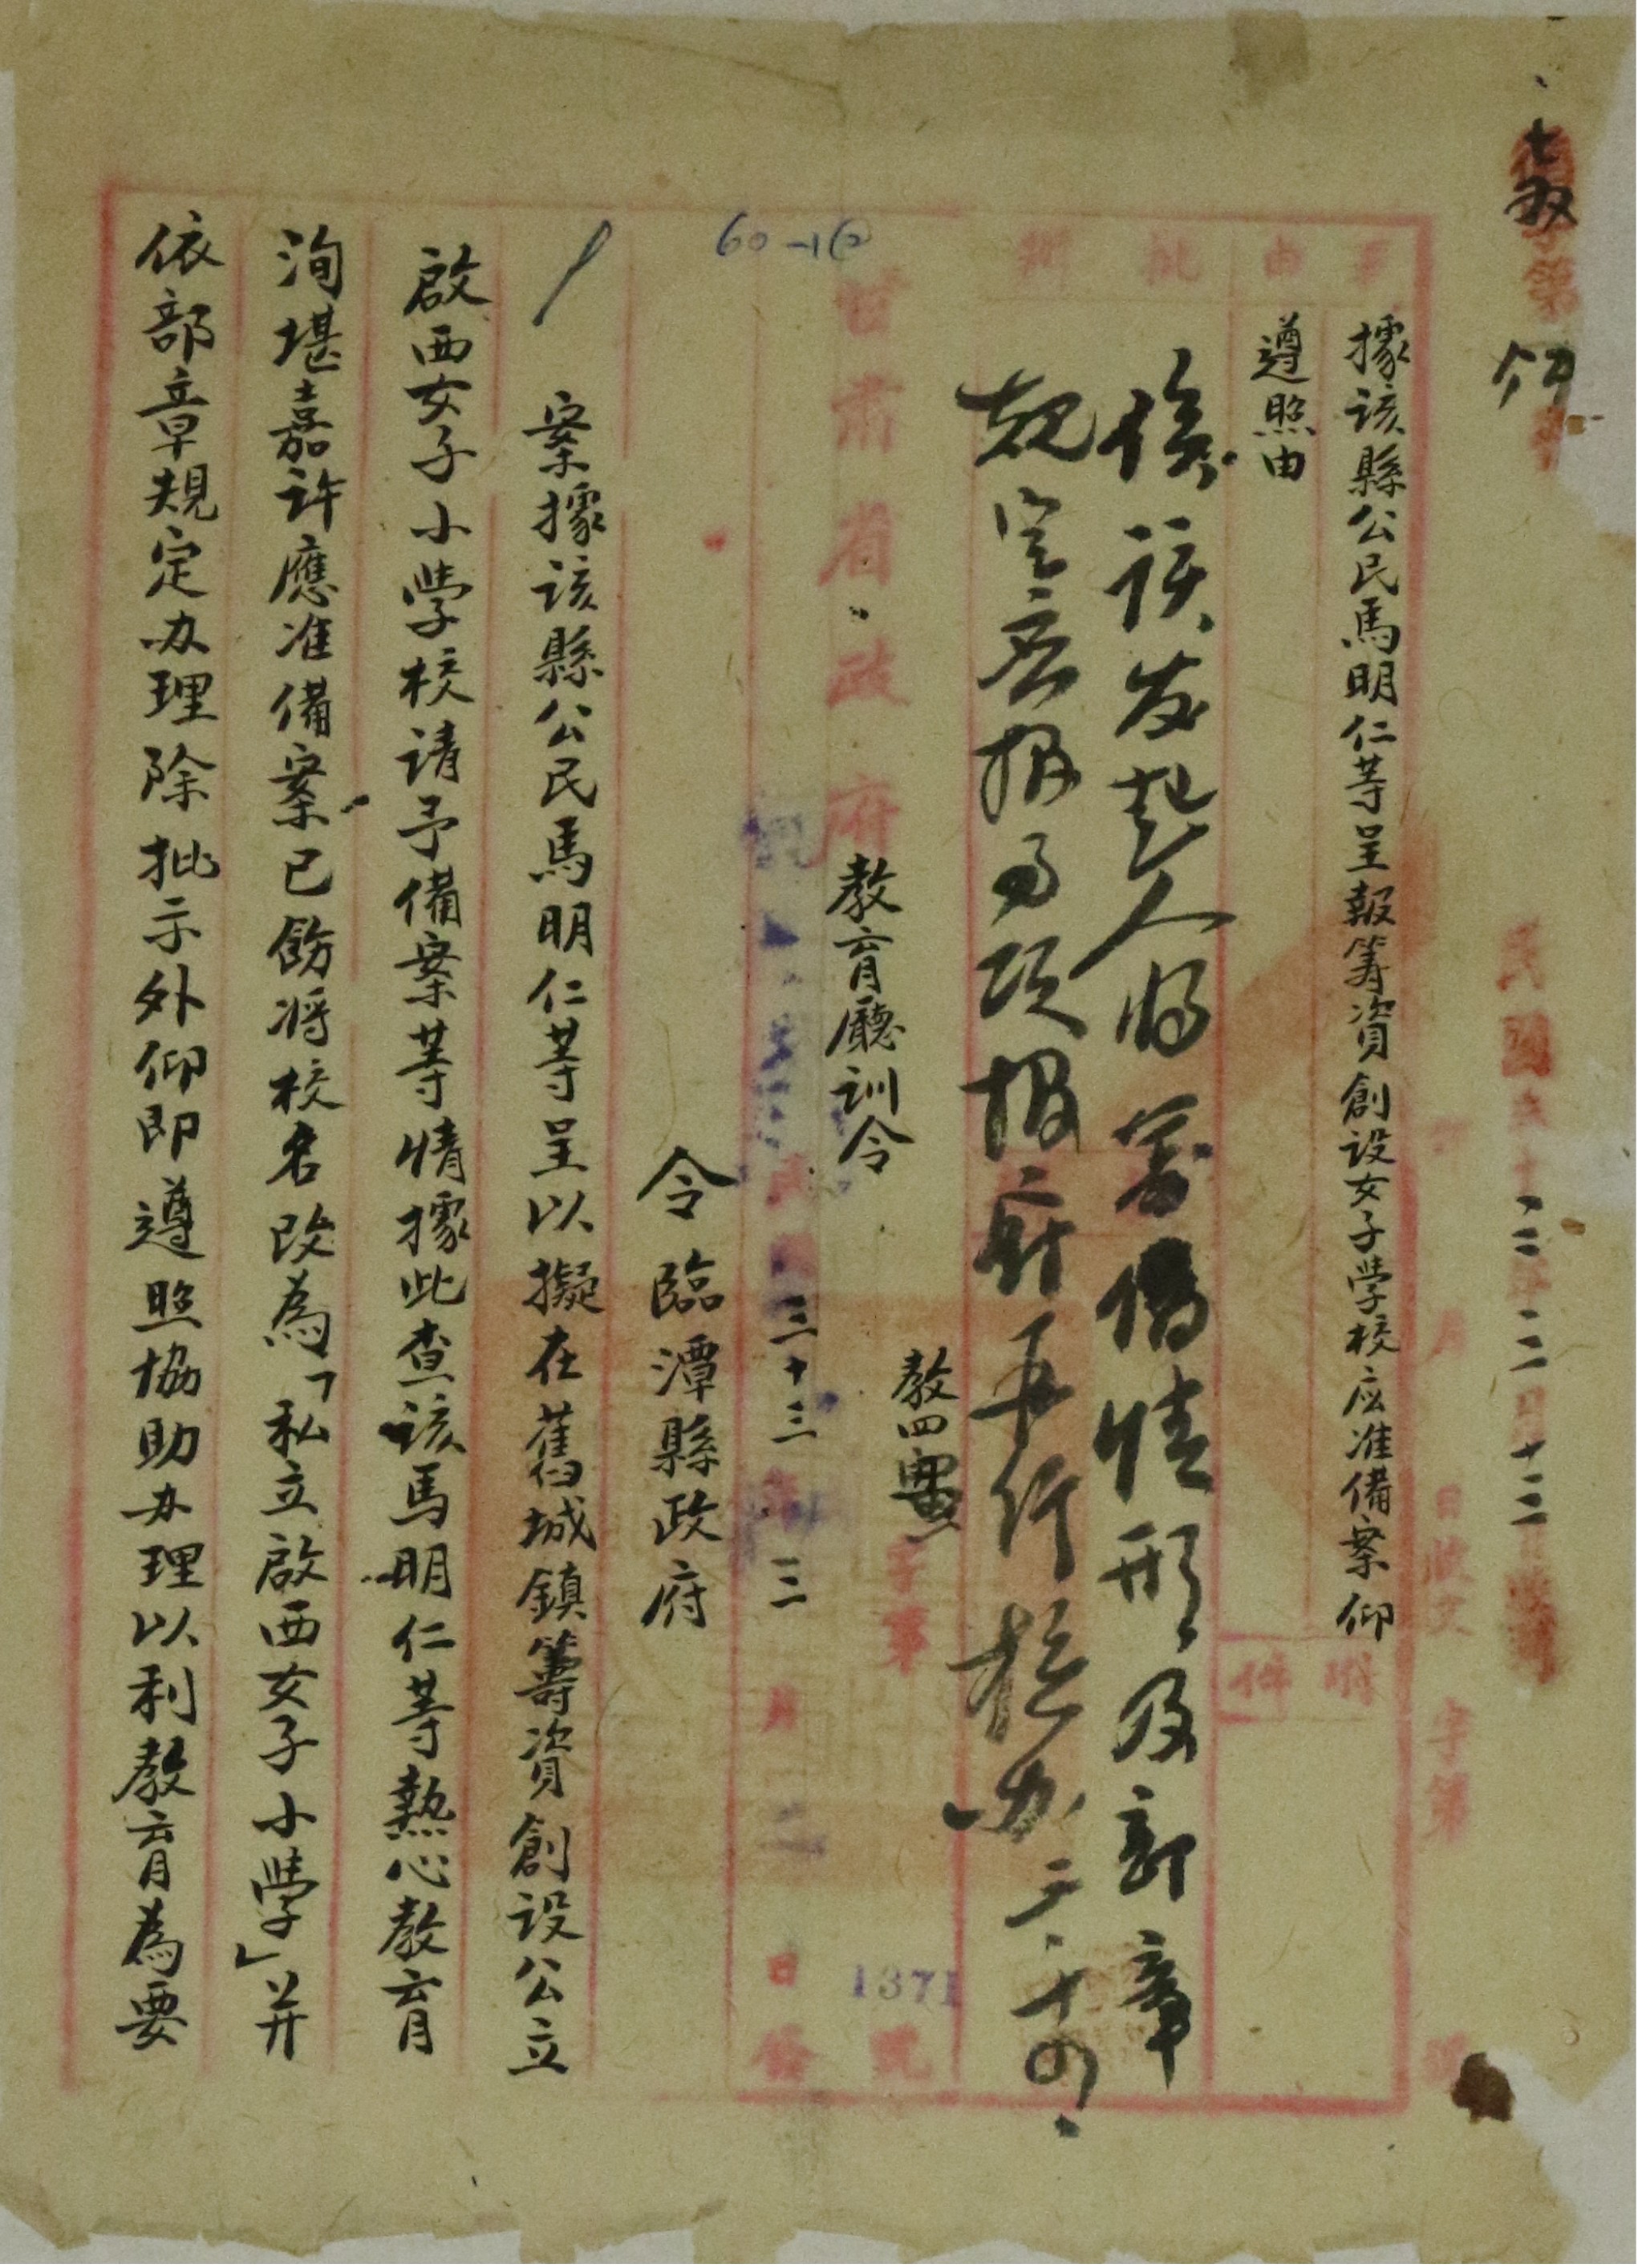 據該縣公民馬明仁等呈報籌資創設女子學校應准備案仰
遵照由
事由
批
附件
俟該发起人将筹備情形及部章
規定应报多项报府再行核办
甘肅省政府教育廳訓令
教四
字第
1371
號
三十三年三月
日發
60-16
令臨潭縣政府
案據該縣公民馬明仁等呈以擬在舊城鎮籌資創设公立
啟西女子小學校请予備案等情據此查該馬明仁等熱心教育
洵堪嘉许應准備案已飭将校名改為「私立啟西女子小學」并
依部章規定办理除批示外仰即遵照協助办理以利教育為要